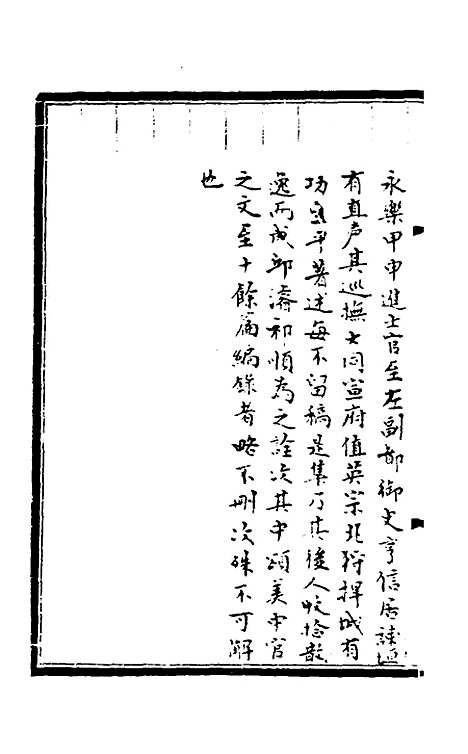 永樂甲申進士官至左副都御史亨信居諫垣
有直声其巡撫大同宣府值英宗北狩捍城有
功生平著述每不留稿是集乃其後人收拾散
逸而成邱濬祁順為之詮次其中頌美中官
之文至十餘篇編錄者略不刪次殊不可解
也